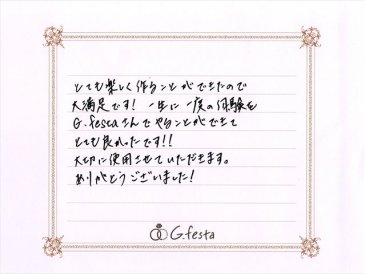 とても楽しく作ることができたので
大満足です！ 一生に一度の体験を
G.festaさんでやることができて
とても良かったです!!
大切に使用させていただきます。
ありがとうございました！
G.festa